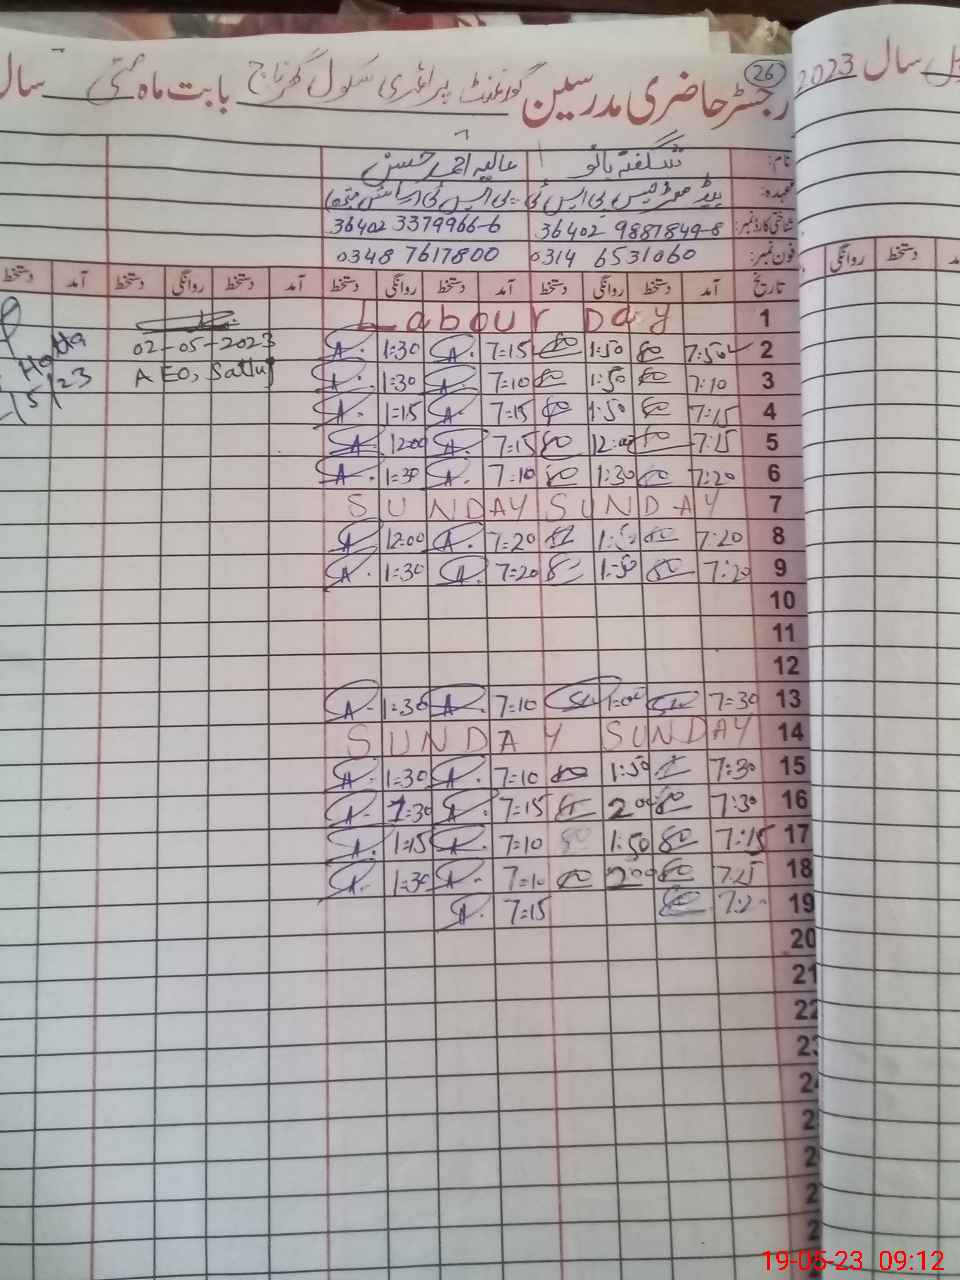 26
رجسٹر حاضری مدرسین گورنمنٹ پرائمری سکول بابت ماہ مئی سال
2023 سال
نام: شگفتہ بانو عالیہ احمد حسن
عہدہ: ہیڈ مسٹریس پی ایس ٹی پی ایس ٹی
شناختی کارڈ نمبر: 36402 9887849-8 36402 3379966-6
فون نمبر: 0314 6531060 0348 7617800
تاریخ آمد دستخط روانگی دستخط آمد دستخط روانگی دستخط آمد دستخط روانگی دستخط آمد دستخط
روانگی دستخط
1 Labour Day
2 7:50 1:50 7=15 A. 1:30 A.
02-05-2023
3 7:10 1:50 7=10 A. 1:30 A.
AEO, Satluj
4 7:15 1:50 7=15 A. 1=15 A.
5 7:15 12:00 7=15 A. 12:00 A.
6 7:20 1:30 7=10 A. 1=30 A.
7 SUNDAY SUNDAY
8 7:20 7=20 A. 12:00 A
9 7:20 1:50 7=20 A. 1:30 A.
10
11
12
13 7=30 1:00 7:10 A. 1:30 A-
14 SUNDAY SUNDAY
15 7:30 1:50 7=10 A. 1=30 A.
16 7:30 200 7=15 A. 1:30 A-
17 7:15 1:50 7=10 A. 1=15 A.
18 200 7=10 A. 1=30 A-
19 7=15 A.
20
21
22
19-05-23 09:12